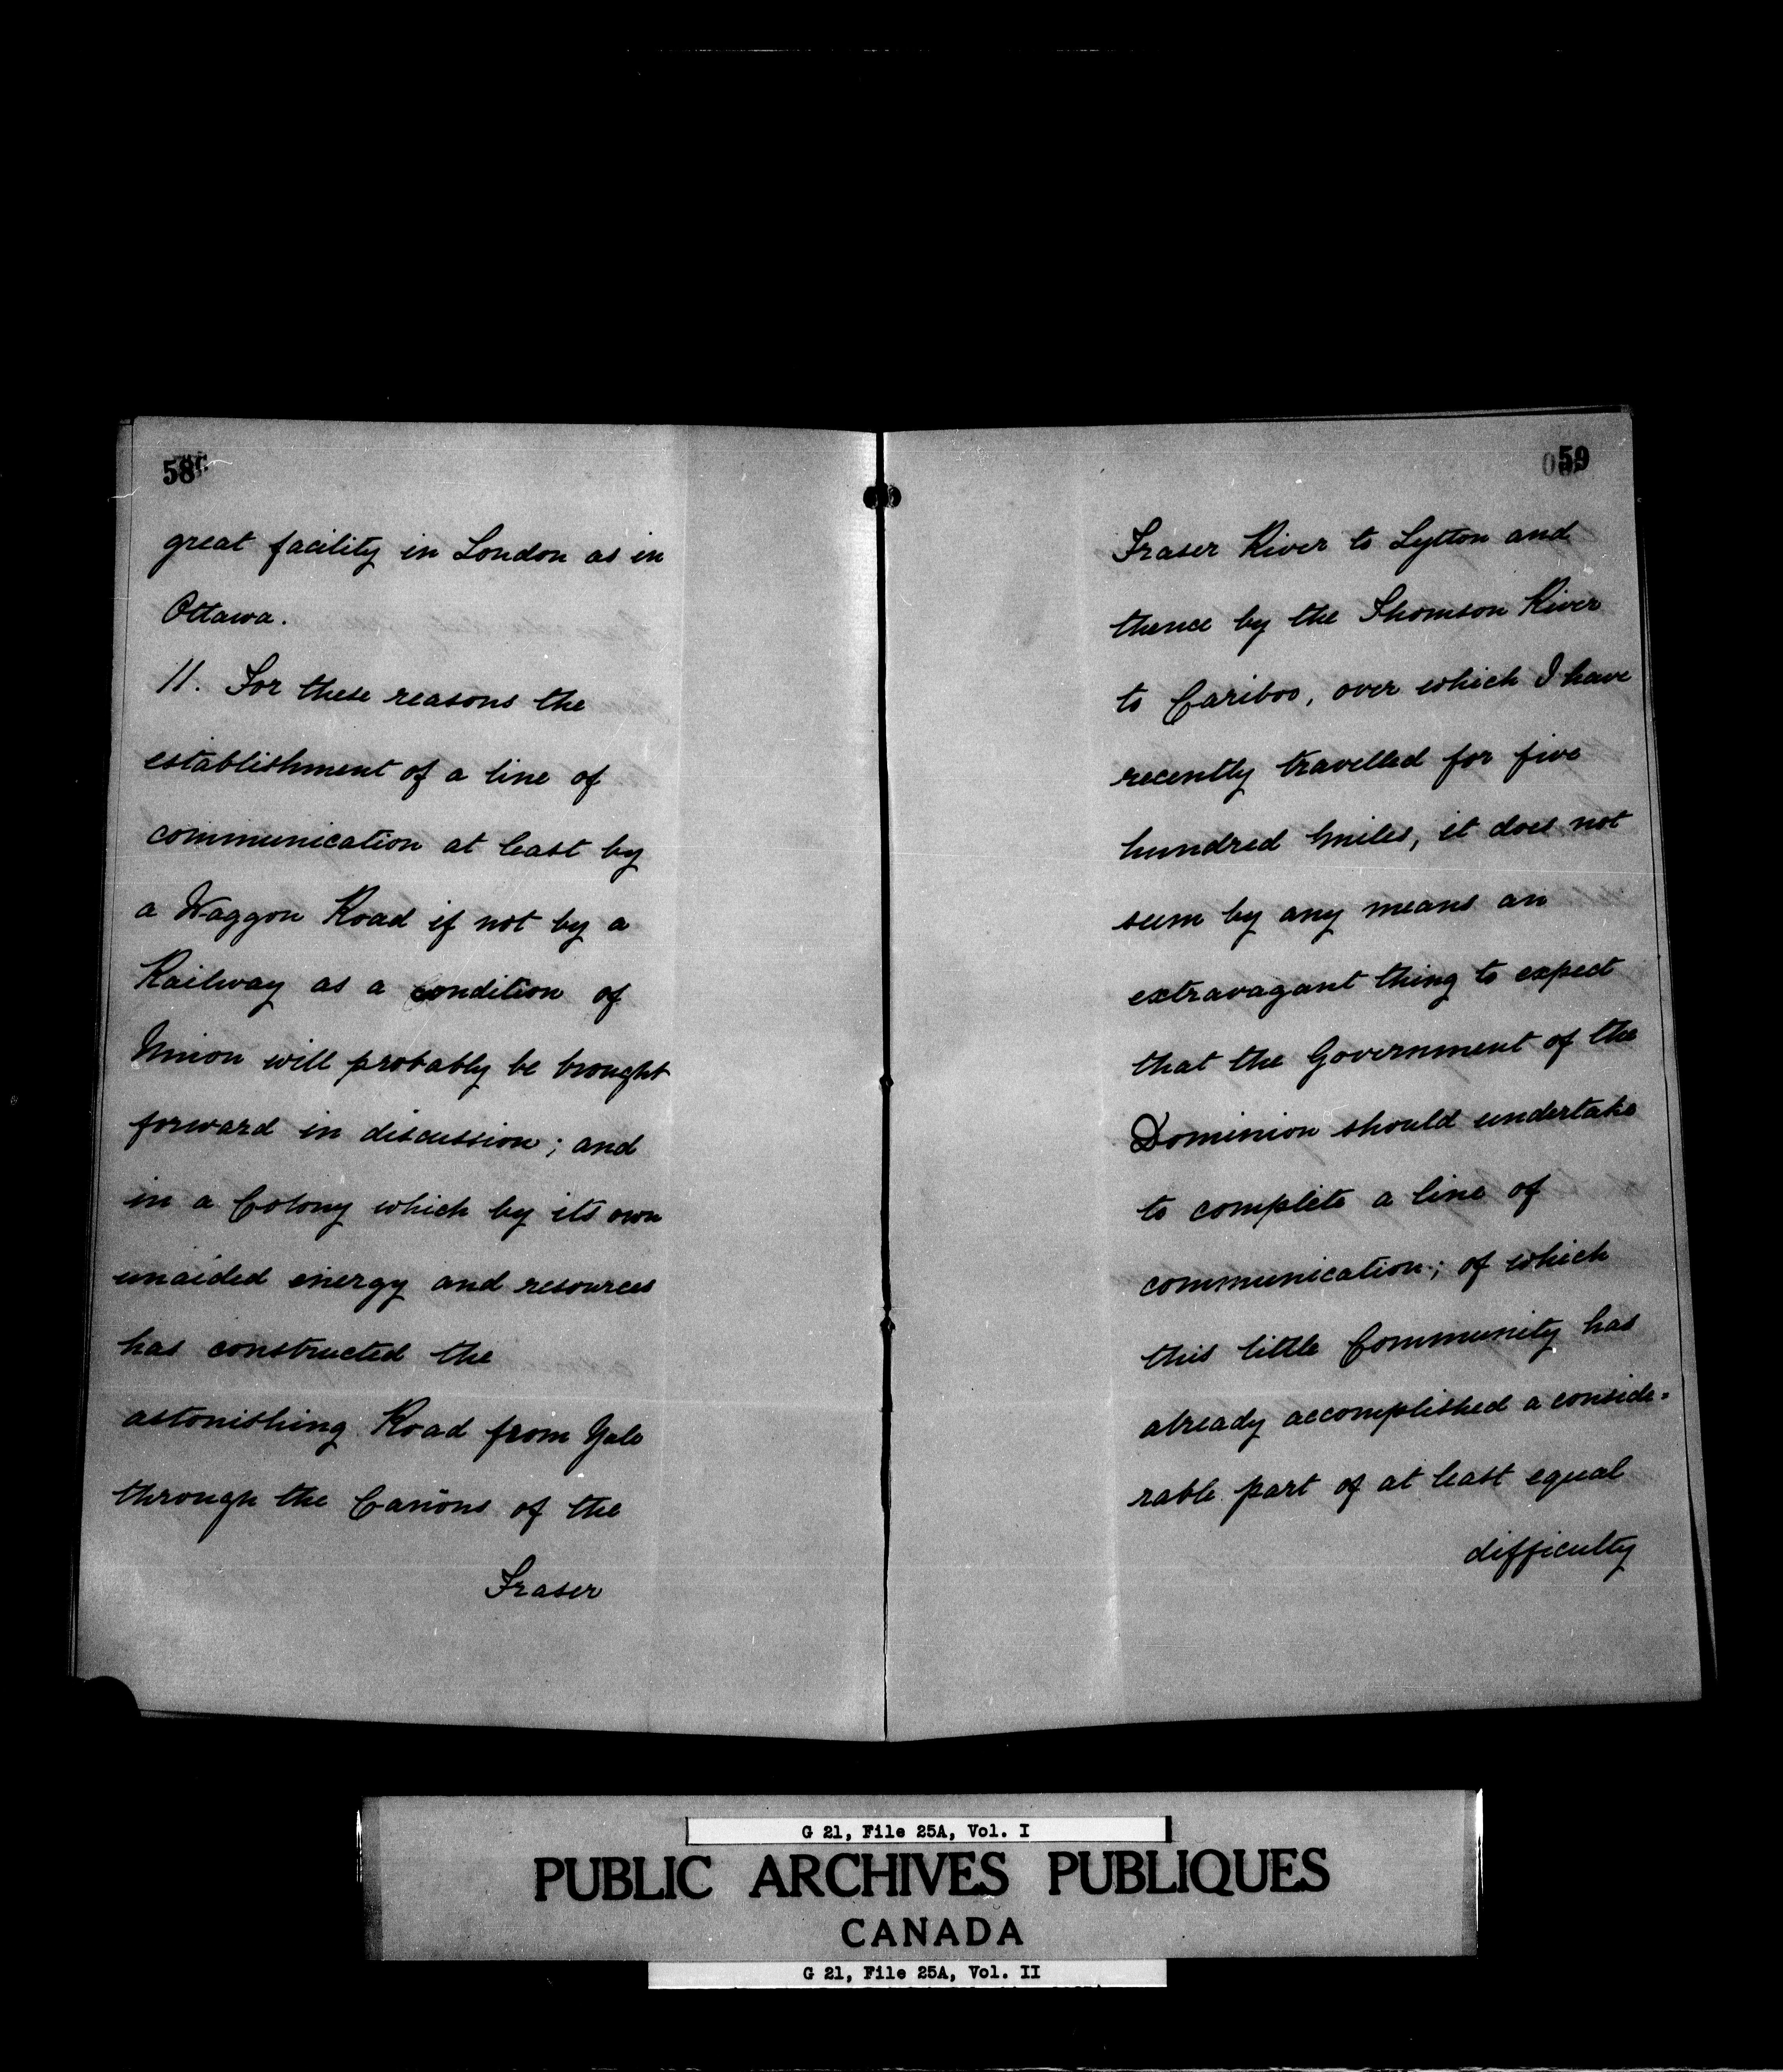 58
great facility in London as in
Ottawa.
11. For these reasons the
establishment of a line of
communication at least by
a Waggon Road if not by a
Railway as a condition of
Union will probably be brought
forward in discussion; and
in a Colony which by its own
unaided energy and resources
has constructed the
astonishing Road from Yale
through the Cañons of the
Fraser
59
Fraser River to Lytton and
thence by the Thomson River
to Cariboo, over which I have
recently travelled for five
hundred miles, it does not
seem by any means an
extravagant thing to expect
that the Government of the
Dominion should undertake
to complete a line of
communication; of which
this little Community has
already accomplished a conside=
rable part of at least equal
difficulty
G 21, File 25A, Vol. I
PUBLIC ARCHIVES PUBLIQUES
CANADA
G 21, File 25A, Vol. II